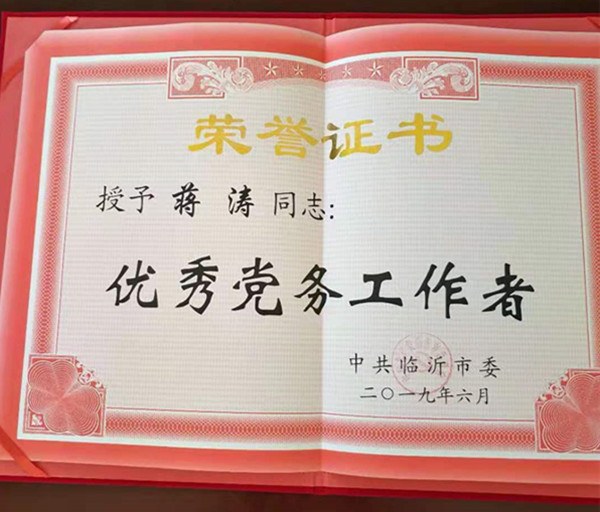 荣誉证书
授予 蒋 涛 同志:
优秀党务工作者
中共临沂市委
二〇一九年六月